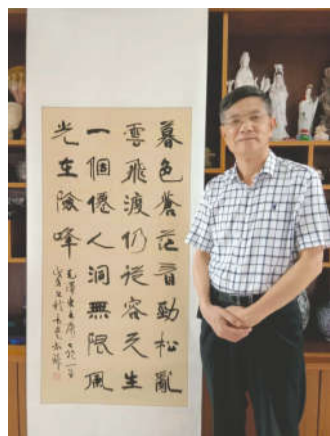 暮色蒼茫看勁松亂
雲飛渡仍從容天生
一個僊人洞無限風
光在險峰
毛澤東